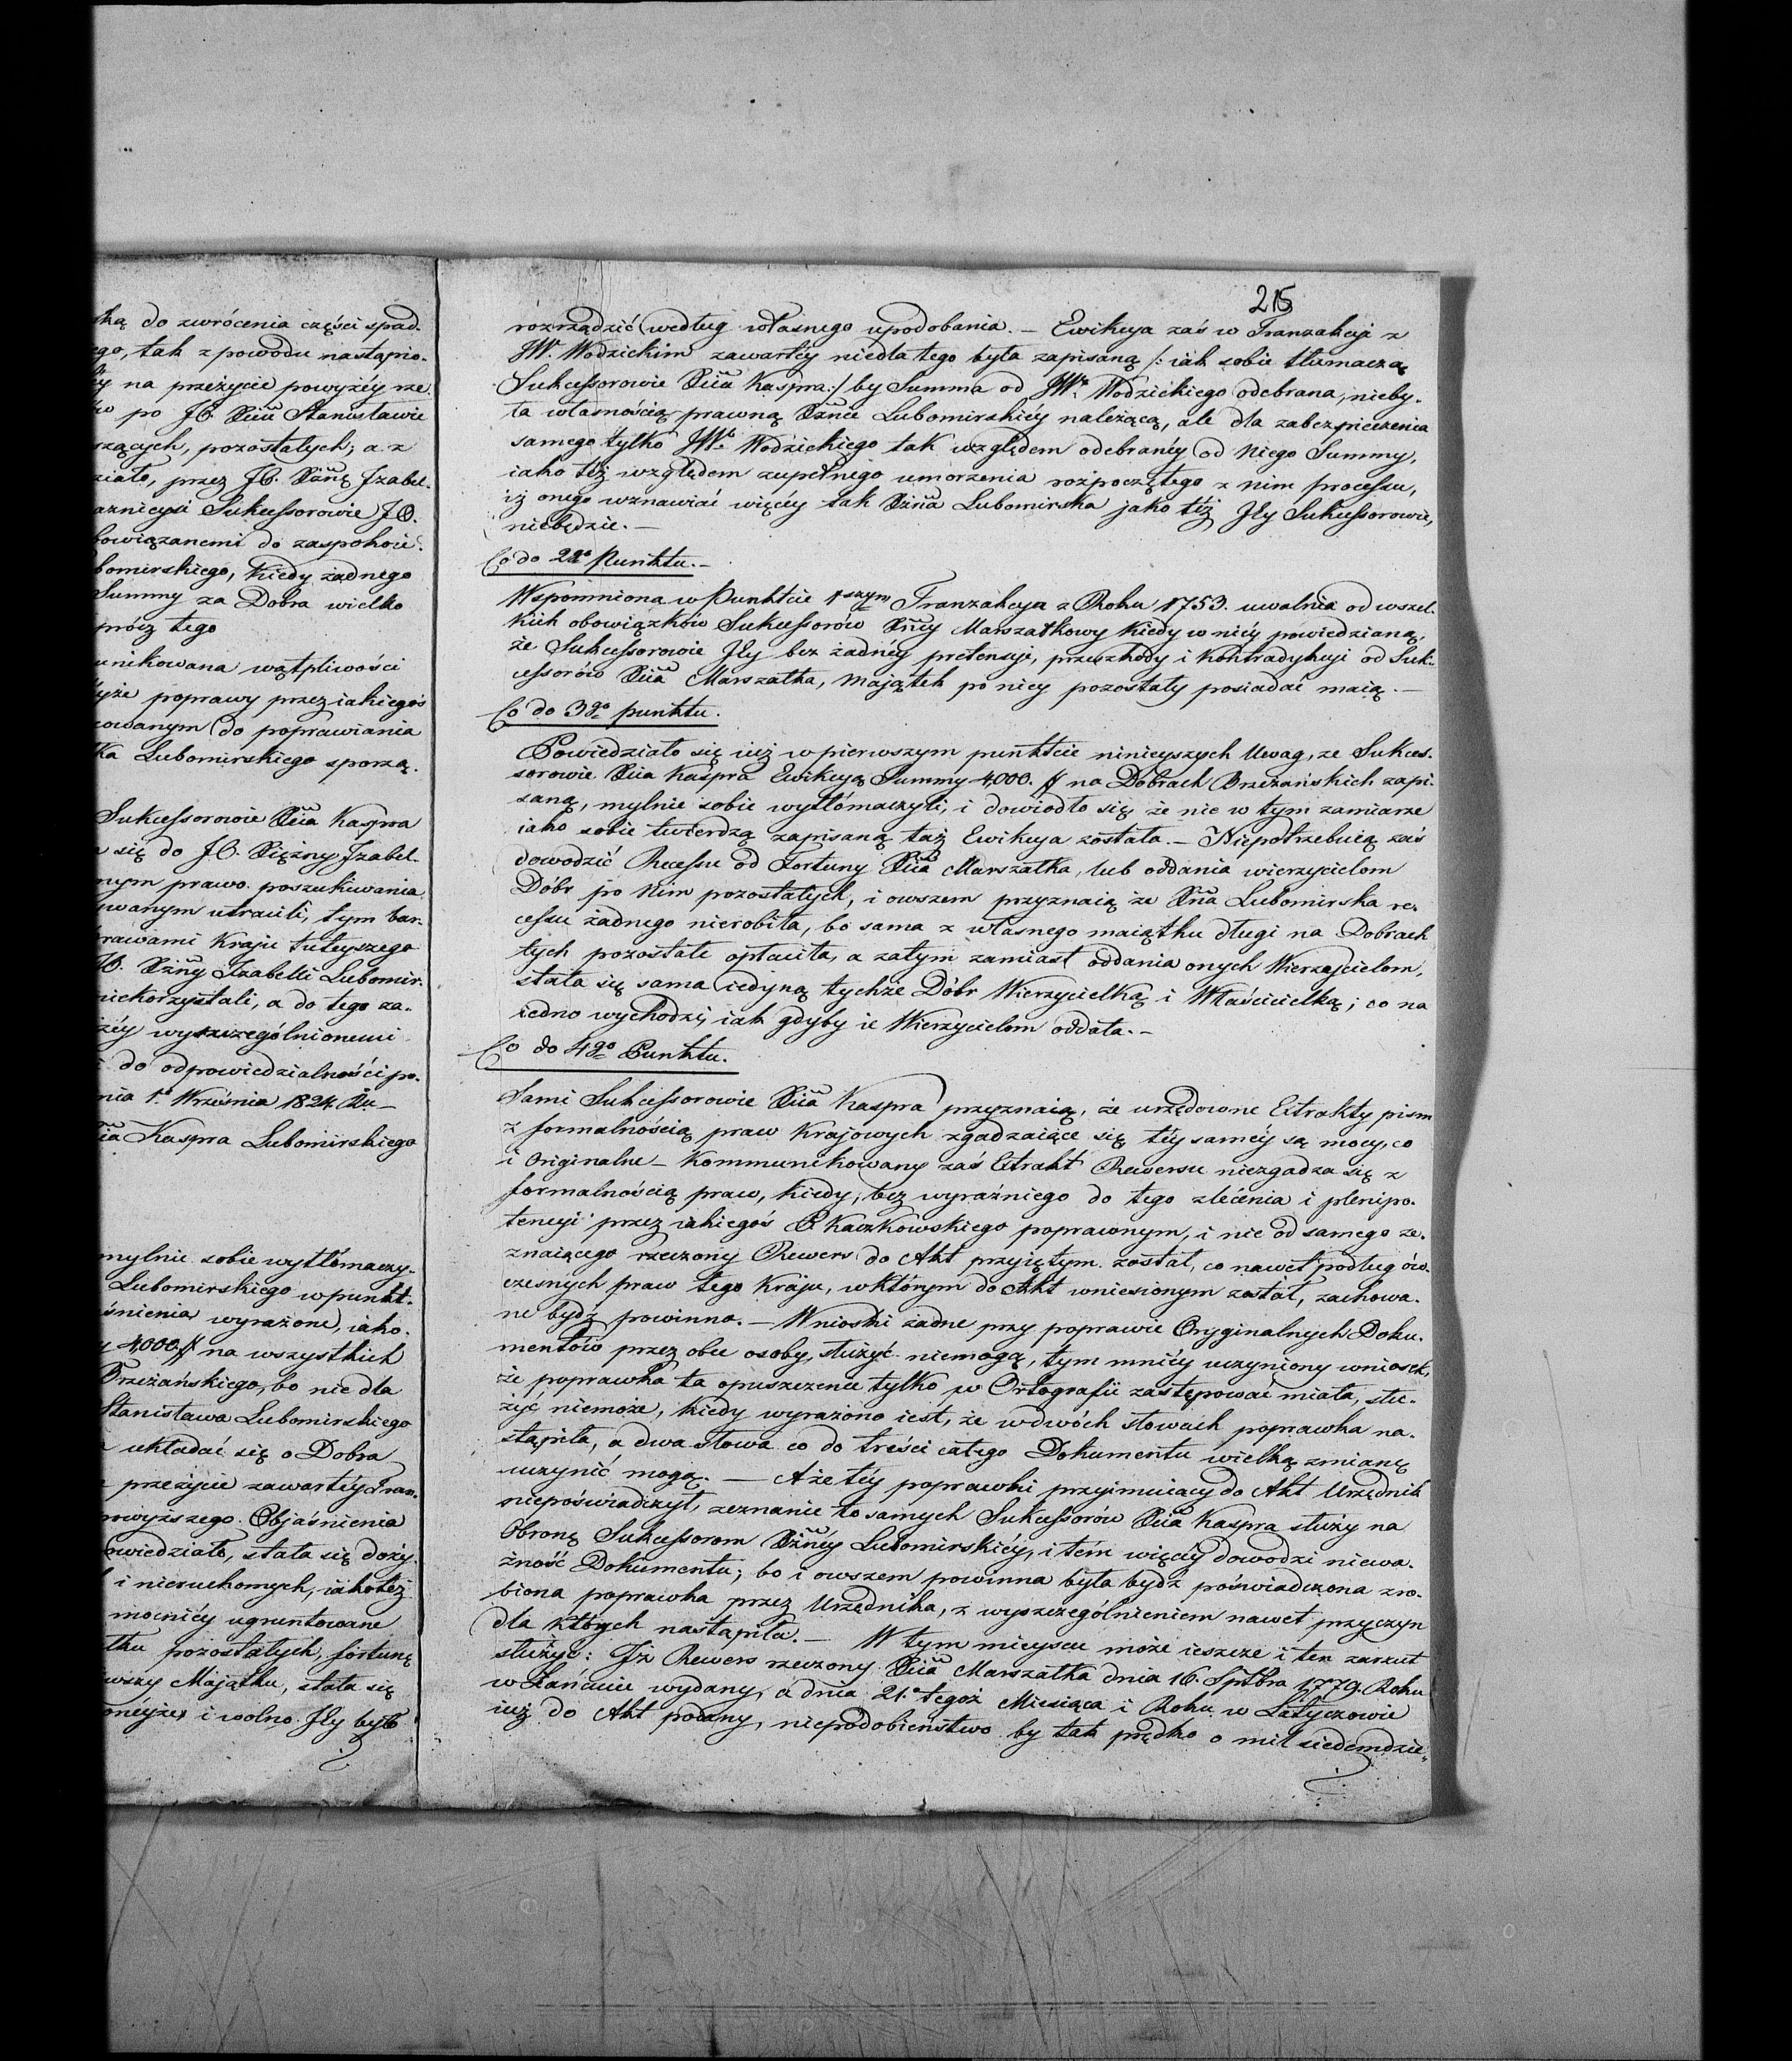 ską do zwrócenia części spad.
ego, tak z powodu nastąpio.
na przeżycie powyżéy rze.
po JO. Xciu Stanisławie
szących, pozostałych; a z
ziało, przez JO. Xżnę Jzabel.
Sukcessorowie JO.
bowiązanemi do zaspokoie.
bomirskiego, kiedy żadnego
Summy za Dobra wielko
prócz tego
unikowana wątpliwości
tyże poprawy przez iakiegoś
cowanym do poprawiania
ka Lubomirskiego sporzą.
Sukcessorowie Xcia Kaspra
się do JO. Xiężny Jzabel.
nym prawo poszukiwania
uwanym utracili, tym bar.
rawami Kraju tuteyszego
JO. Xżny Jzabelli Lubomir.
niekorzystali, a do tego za.
żéy wyszczególnionemi
do odpowiedzialności po.
nia 1o Września 1824 Ru —
cia Kaspra Lubomirskiego
mylnie sobie wytłómaczy.
Lubomirskiego w punkt.
śnienia wyrażone, iako.
y 4,000 # na wszystkich
Brzeżańskiego, bo nie dla
Stanisława Lubomirskiego
układać się o Dobra
przeżycie zawartéy Tran.
powyższego Objaśnienia
owiedziało, stała się doży.
i nieruchomych, iakoteż
mocniéy ugruntowane
tku pozostałych, fortunę
wszy Majątku, stała się
onéyże, i wolno Jéy było
215
rozrządzić według własnego upodobania. — Ewikcya zaś w Tranzakcyi z
JW. Wodzickim zawartéy niedla tego była zapisaną /: iak sobie tłumaczą
Sukcessorowie Xcia Kaspra :/ by Summa od JWo Wodzickiego odebrana, nieby.
ła własnością prawną Xżnie Lubomirskiéy należącą, ale dla zabezpieczenia
samego tylko JWo Wodzickiego tak względem odebranéy od niego Summy,
iako téż względem zupełnego umorzenia rozpoczętego z nim processu,
iż onego wznawiać więcéy tak Xżna Lubomirska jako téż Jéy Sukcessorowie,
niebędzie. —
Co do 2go Punktu. —
Wspomniona w Punkcie 1szym Tranzakcya z Roku 1753. uwalnia od wszel.
kich obowiązków Sukcessorów Xney Marszałkowy kiedy w niéy powiedziano,
że Sukcessorowie Jéy bez żadnéy pretensyi, przeszkody i Kontradykcyi od Suk.
cessorów Xcia Marszałka, Majątek po niey pozostały posiadać maią. —
Co do 3go punktu.
Powiedziało się iuż w pierwszym punkcie ninieyszych Uwag, ze Sukces.
sorowie Xcia Kaspra Ewikcyą Summy 4,000. # na Dobrach Brzeżańskich zapi.
saną, mylnie sobie wytłómaczyli, i dowiodło się że nie w tym zamiarze
iako sobie twierdzą zapisaną taż Ewikcya została. — Niepotrzebują zaś
dowodzić Recessu od Fortuny Xcia Marszałka, lub oddania wierzycielom
Dóbr po nim pozostałych, i owszem przyznaią że Xna Lubomirska re.
cessu żadnego nierobiła, bo sama z własnego maiątku długi na Dobrach
tych pozostałe opłaciła, a zatym zamiast oddania onych Wierzycielom,
stała się sama iedyną tychże Dóbr Wierzycielką i Właścicielką; co na
iedno wychodzi, iak gdyby ie Wierzycielom oddała. —
Co do 4go Punktu.
Sami Sukcessorowie Xcia Kaspra przyznaią, że urzędowne Extrakty pism
z formalnością praw Krajowych zgadzaiące się téy saméy są mocy, co
i Originalne — Kommunikowany zaś Extrakt Rewersu niezgadza się z
formalnością praw, kiedy, bez wyraźniego do tego zlécenia i plenipo.
tencyi przez iakiegoś P. Kaczkowskiego poprawonym, i nie od samego ze.
znaiącego rzeczony Rewers do Akt przyiętym został, co nawet podług ów.
czesnych praw tego kraju, w którym do Akt wniesionym został, zachowa.
ne bydź powinno. — Wnioski żadne przy poprawie Oryginalnych Doku.
mentów przez obce osoby, służyć niemogą, tym mniéy uczyniony wniosek,
że poprawka ta opuszczenie tylko w Ortografii zastępować miała, słu.
żyć niemoże, kiedy wyrażono iest, że w dwóch słowach poprawka na.
stąpiła, a dwa słowa co do treści całego Dokumentu wielką zmianę
uczynić mogą. — A że téy poprawki przyjmuiący do Akt Urzędnik
niepoświadczył, zeznanie to samych Sukcessorów Xcia Kaspra służy na
Obronę Sukcessorom Xżnéy Lubomirskiéy, i tém więcéy dowodzi niewa.
żność Dokumentu; bo i owszem powinna była bydź poświadczona zro.
biona poprawka przez Urzędnika, z wyszczególnieniem nawet przyczyn
dla których nastąpiła. — W tym mieyscu może ieszcze i ten zarzut
służyć: Jż Rewers rzeczony Xcia Marszałka dnia 16. Sptbra 1779. Roku
w Łańcucie wydany, a dnia 21.o tegoż Miesiąca i Roku w Latyczowie
iuż do Akt podany, niepodobieństwo by tak prędko o mil siedemdzie„